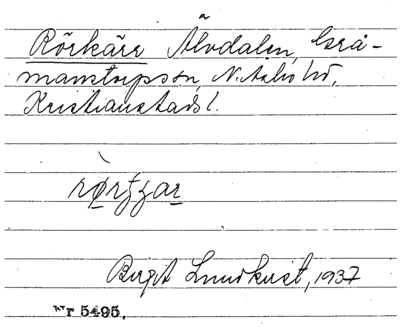 Rörkärr Älvdalen, Grå-
manstorps sn, N. Åsbo hd,
Kristianstads l.
rørtȷar
Birgit Lundkvist, 1937
Nr 5495.